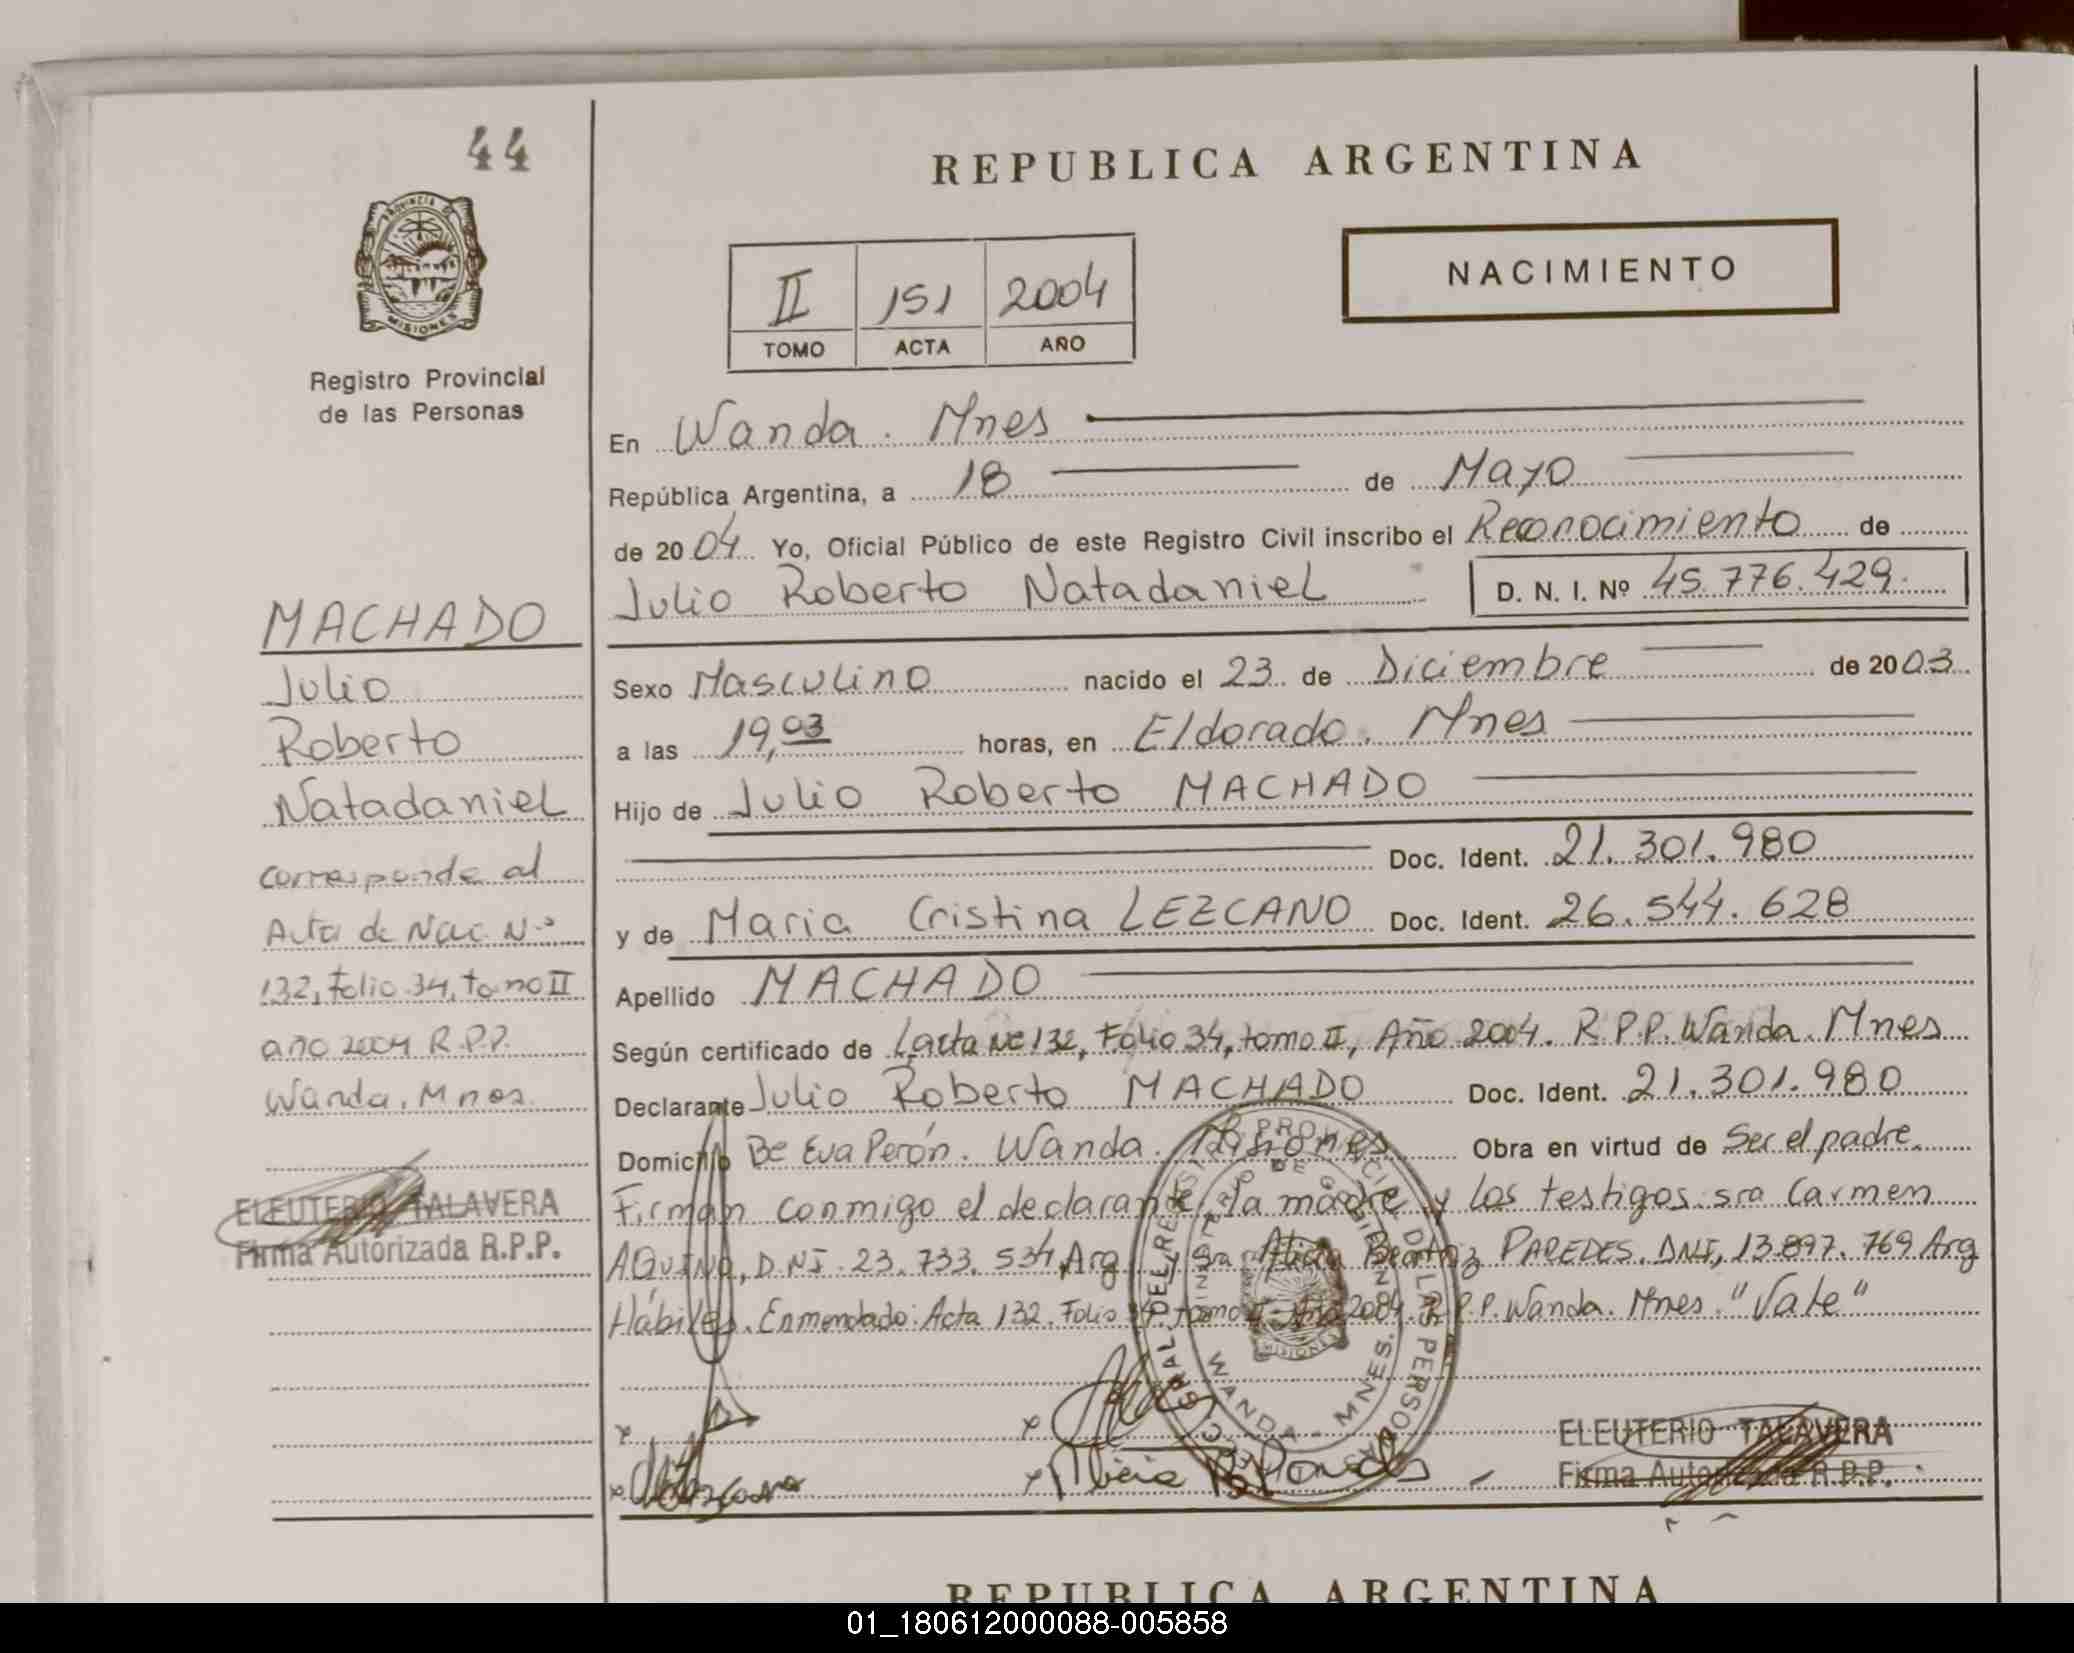 44
REPUBLICA ARGENTINA
PROVINCIA DE
MISIONES
Registro Provincial
de las Personas
NACIMIENTO
II 151 2004
TOMO ACTA AÑO
En Wanda. Mnes
República Argentina, a 18 de Mayo
de 2004 Yo, Oficial Público de este Registro Civil inscribo el Reconocimiento de
Julio Roberto Natadaniel D. N. I. Nº 45.776.429.
Sexo Masculino nacido el 23 de Diciembre de 2003
a las 19,03 horas, en Eldorado. Mnes
Hijo de Julio Roberto MACHADO
Doc. Ident. 21.301.980
y de Maria Cristina LEZCANO Doc. Ident. 26.544.628
Apellido MACHADO
Según certificado de Nº 132, Folio 34, tomo II, Año 2004. R.P.P. Wanda. Mnes
Declarante Julio Roberto MACHADO Doc. Ident. 21.301.980
Domicilio Bº Eva Perón. Wanda. Misiones Obra en virtud de Ser el padre.
Firman conmigo el declarante, la madre y los testigos: sra Carmen
AQUINO, DNI. 23.733.534, Arg y Sra Alicia Beatriz PAREDES. DNI, 13.897.769 Arg
Hábiles. Enmendado: Acta 132. Folio 34. tomo II. Año 2004. R.P.P. Wanda. Mnes. "Vale"
MACHADO
Julio
Roberto
Natadaniel
corresponde al
Acta de Nac Nº
132, folio 34, tomo II
año 2004 R.P.P.
Wanda. Mnes.
ELEUTERIO TALAVERA
Firma Autorizada R.P.P.
REGISTRO PROVINCIAL DE LAS PERSONAS
MINISTERIO DE GOBIERNO
MISIONES
WANDA - MNES.
ELEUTERIO TALAVERA
Firma Autorizada R.P.P.
REPUBLICA ARGENTINA
01_180612000088-005858